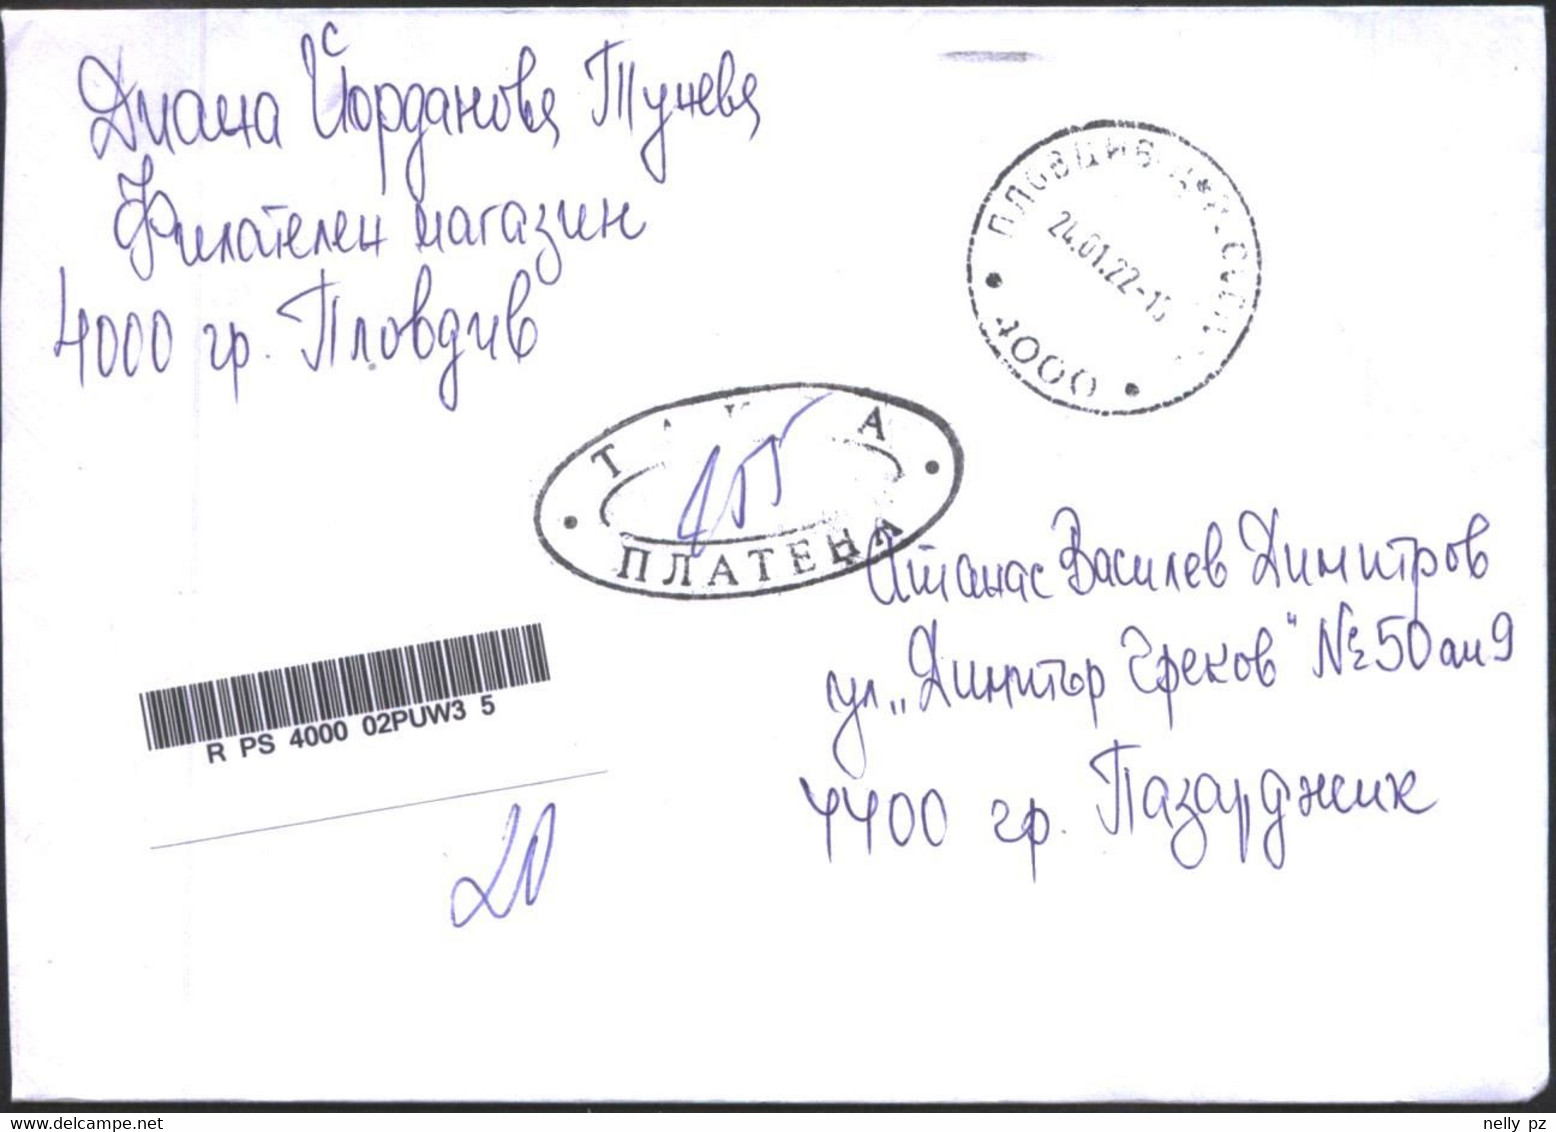 Диана Йорданова Тунева
Филателен магазин
4000 гр. Пловдив
ПЛОВДИВ
24.01.22-15
4000
ТАКСА
ПЛАТЕНА
Атанас Василев Димитров
ул. „Димитър Греков" № 50 ап 9
4400 гр. Пазарджик
R PS 4000 02PUW3 5
20
www.delcampe.net
nelly_pz